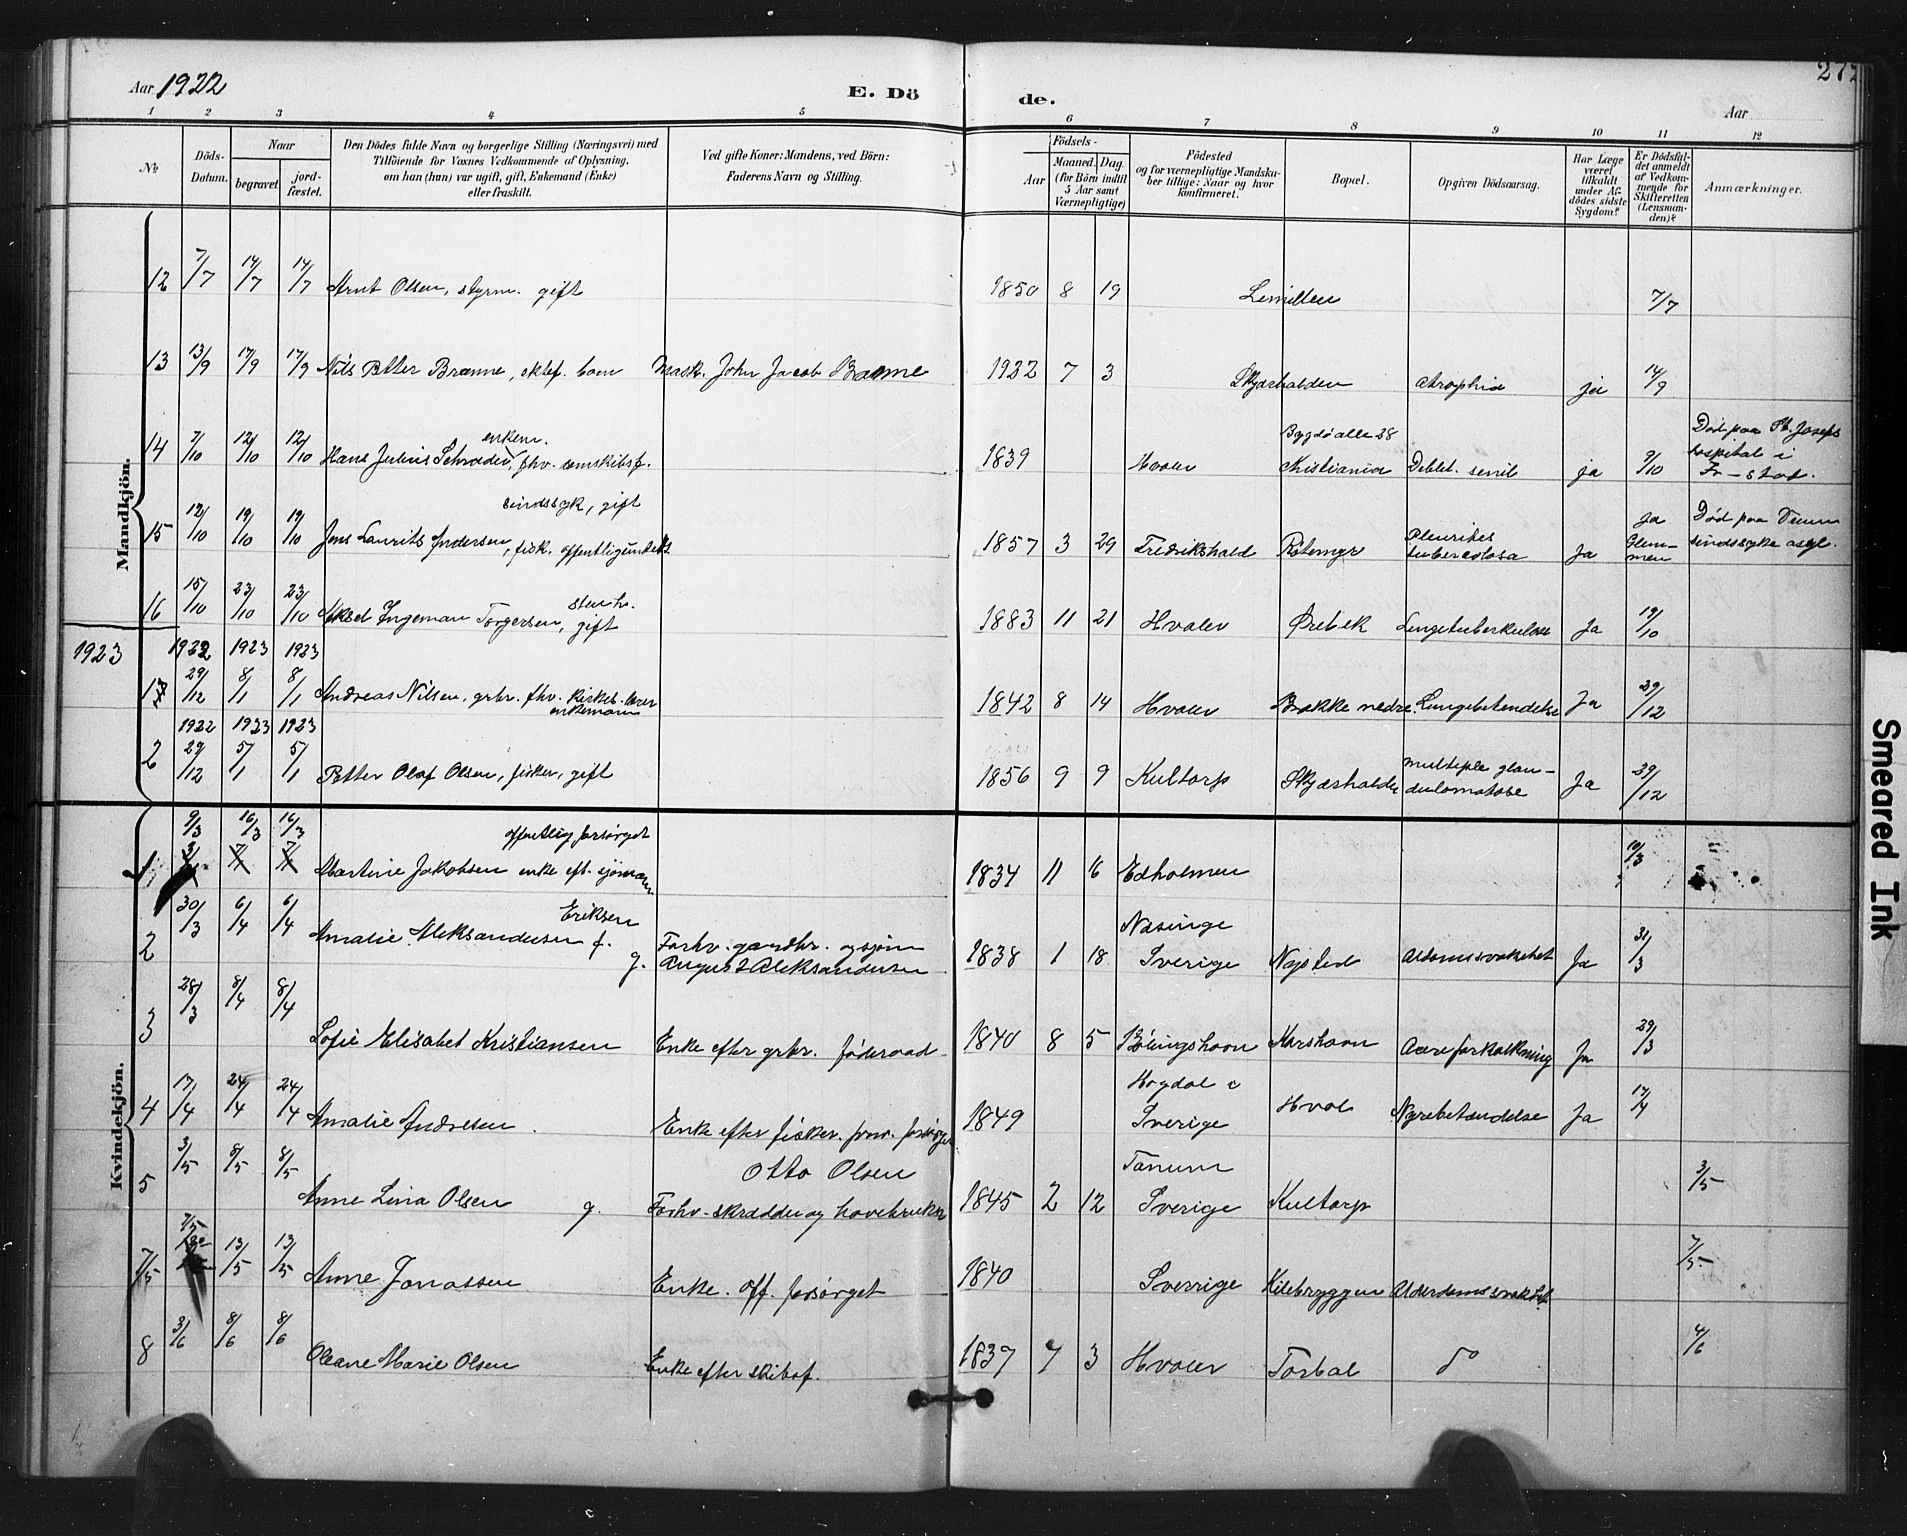 Aar 1922
E. Dö
de.
272
Aar
1 2 3 4 5 6 7 8 9 10 11 12
No
Döds-Datum.
Naar
begravet.
jordfæstet.
Den Dödes fulde Navn og borgerlige Stilling (Næringsvei) med
Tilföiende for Voxnes Vedkommende af Oplysning,
om han (hun) var ugift, gift, Enkemand (Enke)
eller fraskilt.
Ved gifte Koner: Mandens, ved Börn:
Faderens Navn og Stilling.
Födsels-
Aar
Maaned. Dag.
(for Börn indtil
5 Aar samt
Værnepligtige)
Födested
og for værnepligtige Mandska-
ber tillige: Naar og hvor
konfirmeret.
Bopæl.
Opgiven Dödsaarsag.
Har Læge
været
tilkaldt
under Af-
dödes sidste
Sygdom?
Er Dödsfal-
det anmeldt
af Vedkom-
mende for
Skifteretten
(Lensman-
den)?
Anmærkninger.
Mandkjön.
12 7/7 14/7 14/7 Arnt Olsen, styrm. gift 1850 8 19 7/7
13 13/9 17/9 17/9 Nils Petter Brænne, ektef. barn Mask. John Jacob Brænne 1922 7 3 Skjærhalden atrophia ja 14/9
14 7/10 12/10 12/10 Hans Julius Schrøder, fhv. skibsf. enkem. 1839 Hvaler Bygdö alle 28 Kristiania Debilit. senil ja 9/10 Död paa St. Josefs hospital i Fr-stad.
15 12/10 19/10 19/10 Jens Laurits Andersen, fisk. sindssyk, gift 1857 3 29 Fredrikshald Rötemyr Pleurites tuberculosa Ja Ja Glemmen Död paa Veum sindssyke asyl.
16 15/10 23/10 23/10 Aksel Ingeman Torgersen, stenh. gift 1883 11 21 Hvaler Ørebek Lungetuberkulose Ja 19/10
1923 1922 1923 1923
1 29/12 8/1 8/1 Andreas Nilsen, grbr. fhv. enkemann 1842 8 14 Hvaler Bakke nedre Lungebetendelse Ja 29/12
1922 1923 1923
2 29/12 5/1 5/1 Petter Olaf Olsen, fisker, gift 1856 9 9 Kultorp Skjærhalden multiple Ja 29/12
Kvindekjön.
1 9/3 16/3 16/3 Martine Jakobsen enke eft. sjömann offentlig forsørget 1834 11 6 Edholmen 10/3
2 30/3 6/4 6/4 Amalie Aleksandersen f. Eriksen g. Forhv. gaardbr. og sjöm August Aleksandersen 1838 1 18 Næsinge Sverige Nysted Alderdomssvakhet Ja 31/3
3 28/3 8/4 8/4 Sofie Elisabet Kristiansen Enke efter grbr. föderaad 1840 8 5 Bölingshavn Korshavn Aareforkalkning Ja 29/3
4 17/4 24/4 24/4 Amalie Andresen Enke efter fisker. 1849 Hogdal Sverige Hval Nyrebetændelse Ja 17/4
5 3/5 8/5 8/5 Anne Lina Olsen g. Otto Olsen Forhv. skrædder og havebruker 1845 2 12 Tanum Sverige Kultorp 3/5
7/5 13/5 13/5 Anne Jonassen Enke. off. forsørget 1840 Sverrige Kilebryggen Alderdomssvakhet 7/5
8 3/6 8/6 8/6 Oleane Marie Olsen Enke efter skibsf. 1837 7 3 Hvaler do 4/6
Smeared Ink